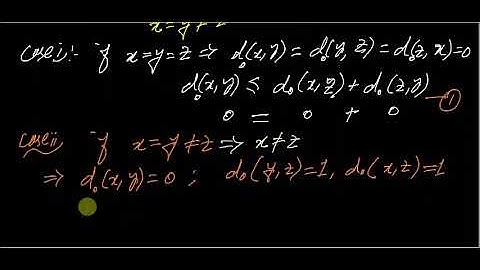 x=y≠z
Case i:- if x=y=z ⇒ d₀(x,y)=d₀(y,z)=d₀(z,x)=0
d₀(x,y) ≤ d₀(x,z)+d₀(z,y)
0 = 0 + 0 — ①
Case ii if x=y≠z ⇒ x≠z
⇒ d₀(x,y)=0 ; d₀(y,z)=1, d₀(x,z)=1